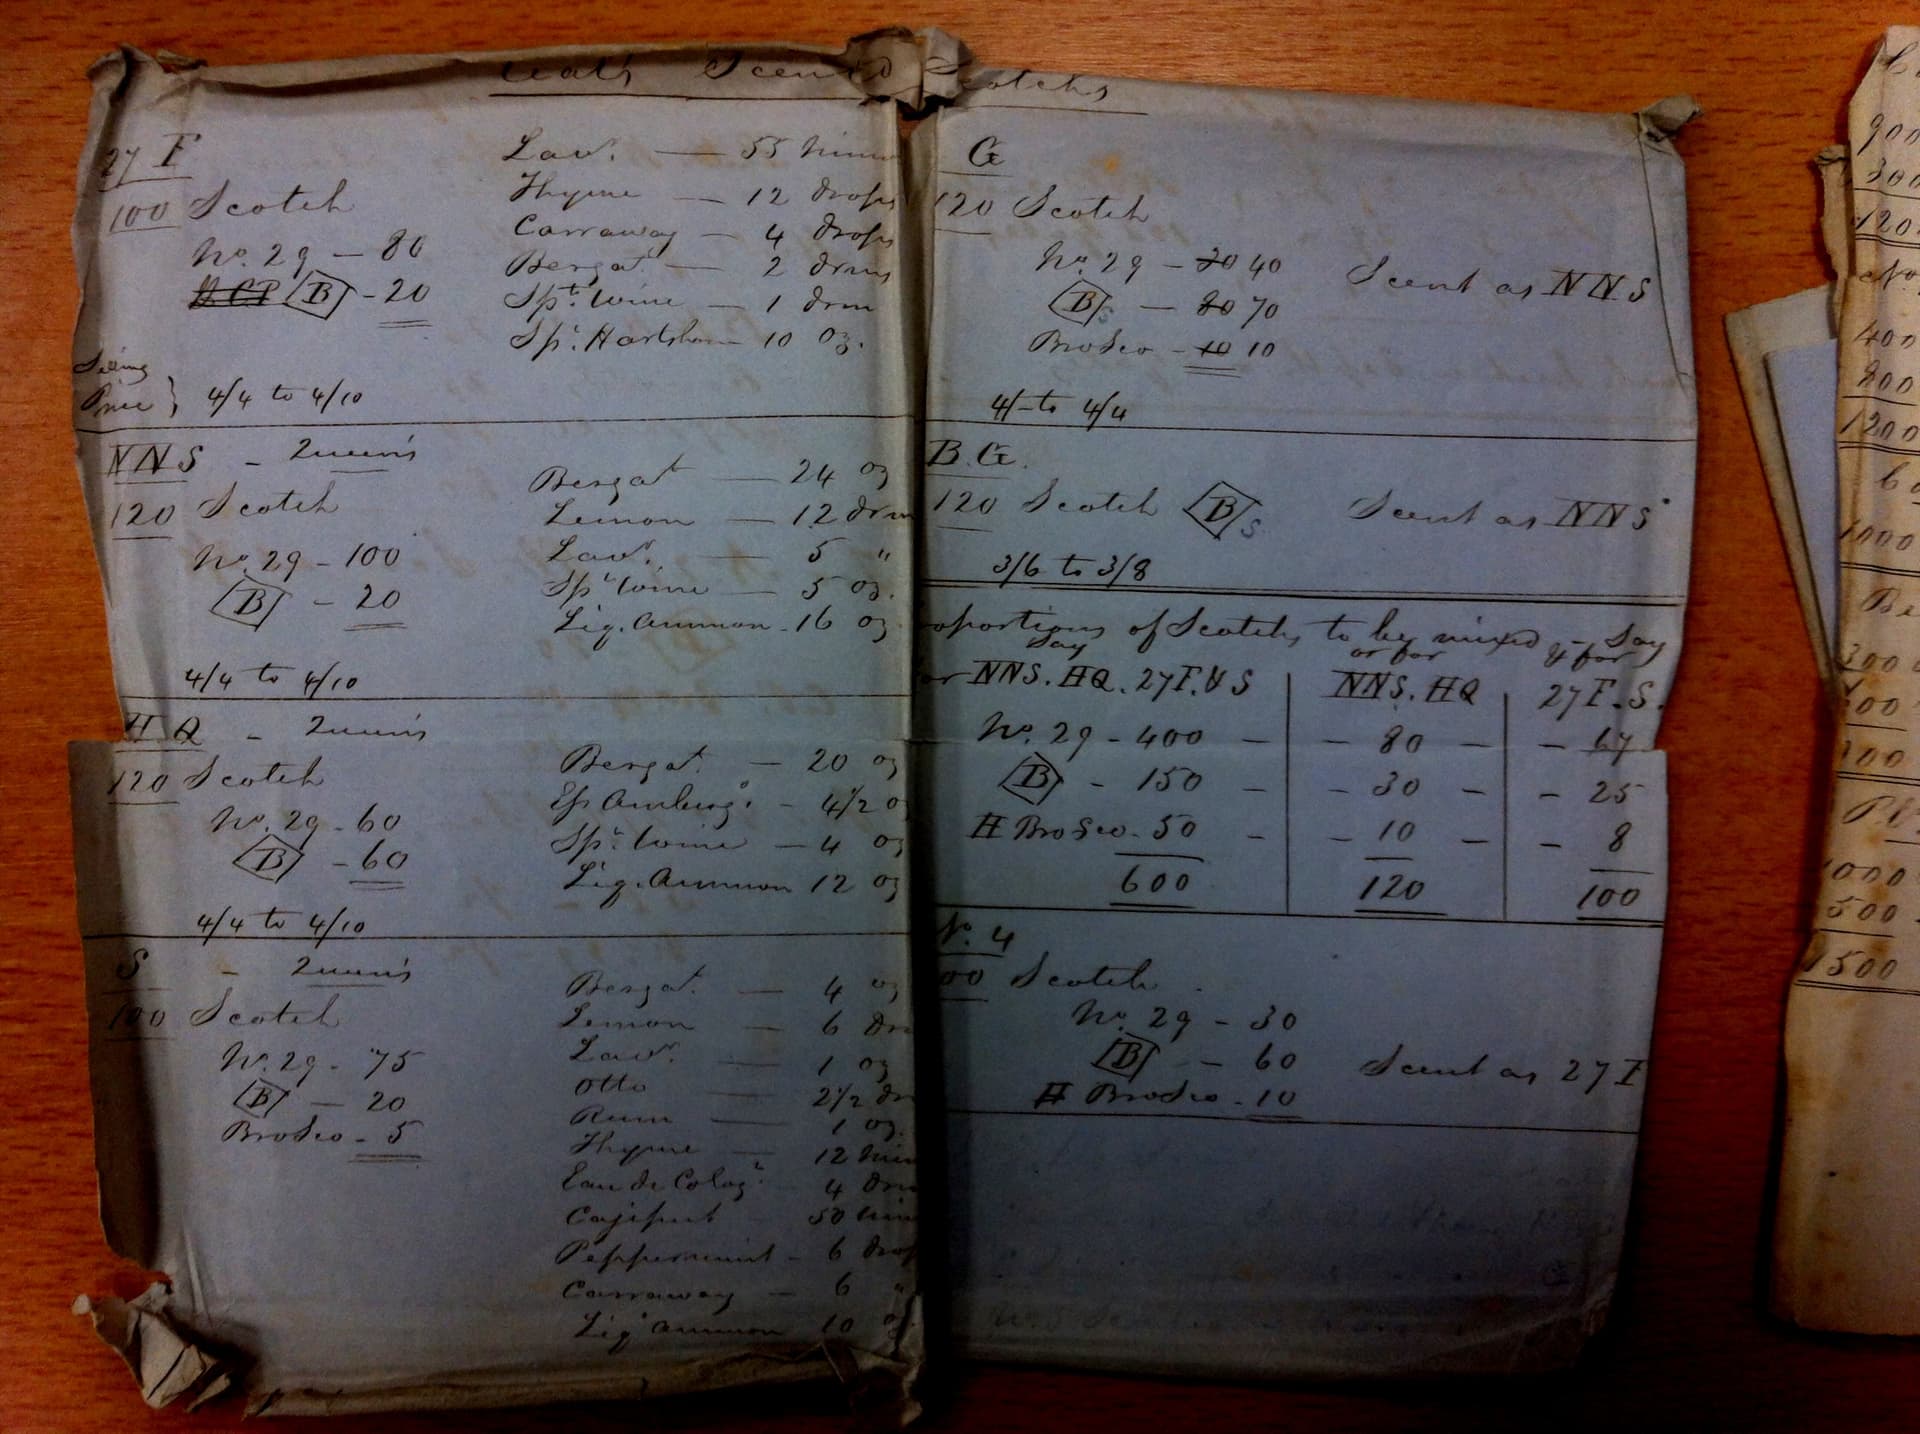 Scented Scotchs
27 F
100 Scotch
No. 29 — 80
B - 20
Lav. — 55
Thyme — 12 drops
Carraway — 4 drops
Bergat. — 2 drms
Spt. Wine — 1 drm
Spt. Hartshorn 10 oz.
Selling
Price } 4/4 to 4/10
NNS - 2
120 Scotch
No. 29 - 100
B - 20
Bergat — 24 oz
Lemon — 12 drm
Lavr. — 5 "
Spt Wine — 5 oz.
Liq. Ammon - 16 oz
4/4 to 4/10
HQ - 2
120 Scotch
No. 29 - 60
B - 60
Bergat. — 20 oz
Ess Ambergs. - 4 1/2 o
Spt. Wine — 4 oz
Liq. Ammon 12 oz
4/4 to 4/10
S - 2
100 Scotch
No. 29 - 75
B — 20
- 5
Bergat. — 4 oz
Lemon — 6 Drm
Lavr. — 1 oz
Otto — 2 1/2 dr
Rum — 1 oz.
Thyme — 12 min
Eau de Colog. 4 Drm
Cajiput 50 min
Peppermint - 6 drop
Carraway — 6 "
Liqr Ammon 10 oz.
G
120 Scotch
No. 29 - 30 40
B S — 80 70
- 10 10
Scent as NNS
4/- to 4/4
B.G.
120 Scotch B S Scent as NNS
3/6 to 3/8
oportions of Scotchs to be mixed
Say or for Say
or NNS. HQ. 27F. & S NNS. HQ 27 F. S.
No. 29 - 400 — - 80 — - 67
B - 150 — - 30 — - 25
50 — - 10 — - 8
600 120 100
No. 4
00 Scotch
No. 29 - 30
B — 60
- 10
Scent as 27 F
900
300
1200
No.
400
800
1200
6
1000
Be
300
200
1000
500
1500